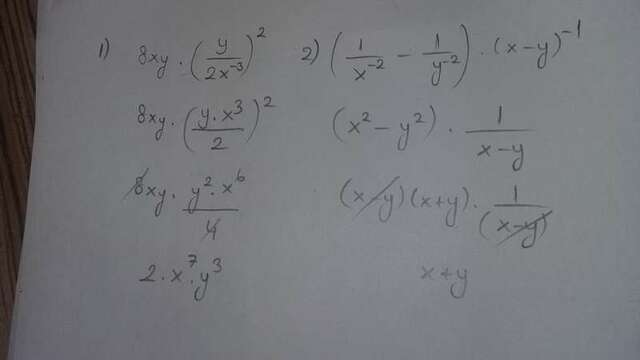 1) 8xy · (y/2x⁻³)²
8xy · (y·x³/2)²
8xy · y²·x⁶/4
2·x⁷·y³
2) (1/x⁻² - 1/y⁻²) · (x-y)⁻¹
(x²-y²) · 1/x-y
(x-y)(x+y) · 1/(x-y)
x+y